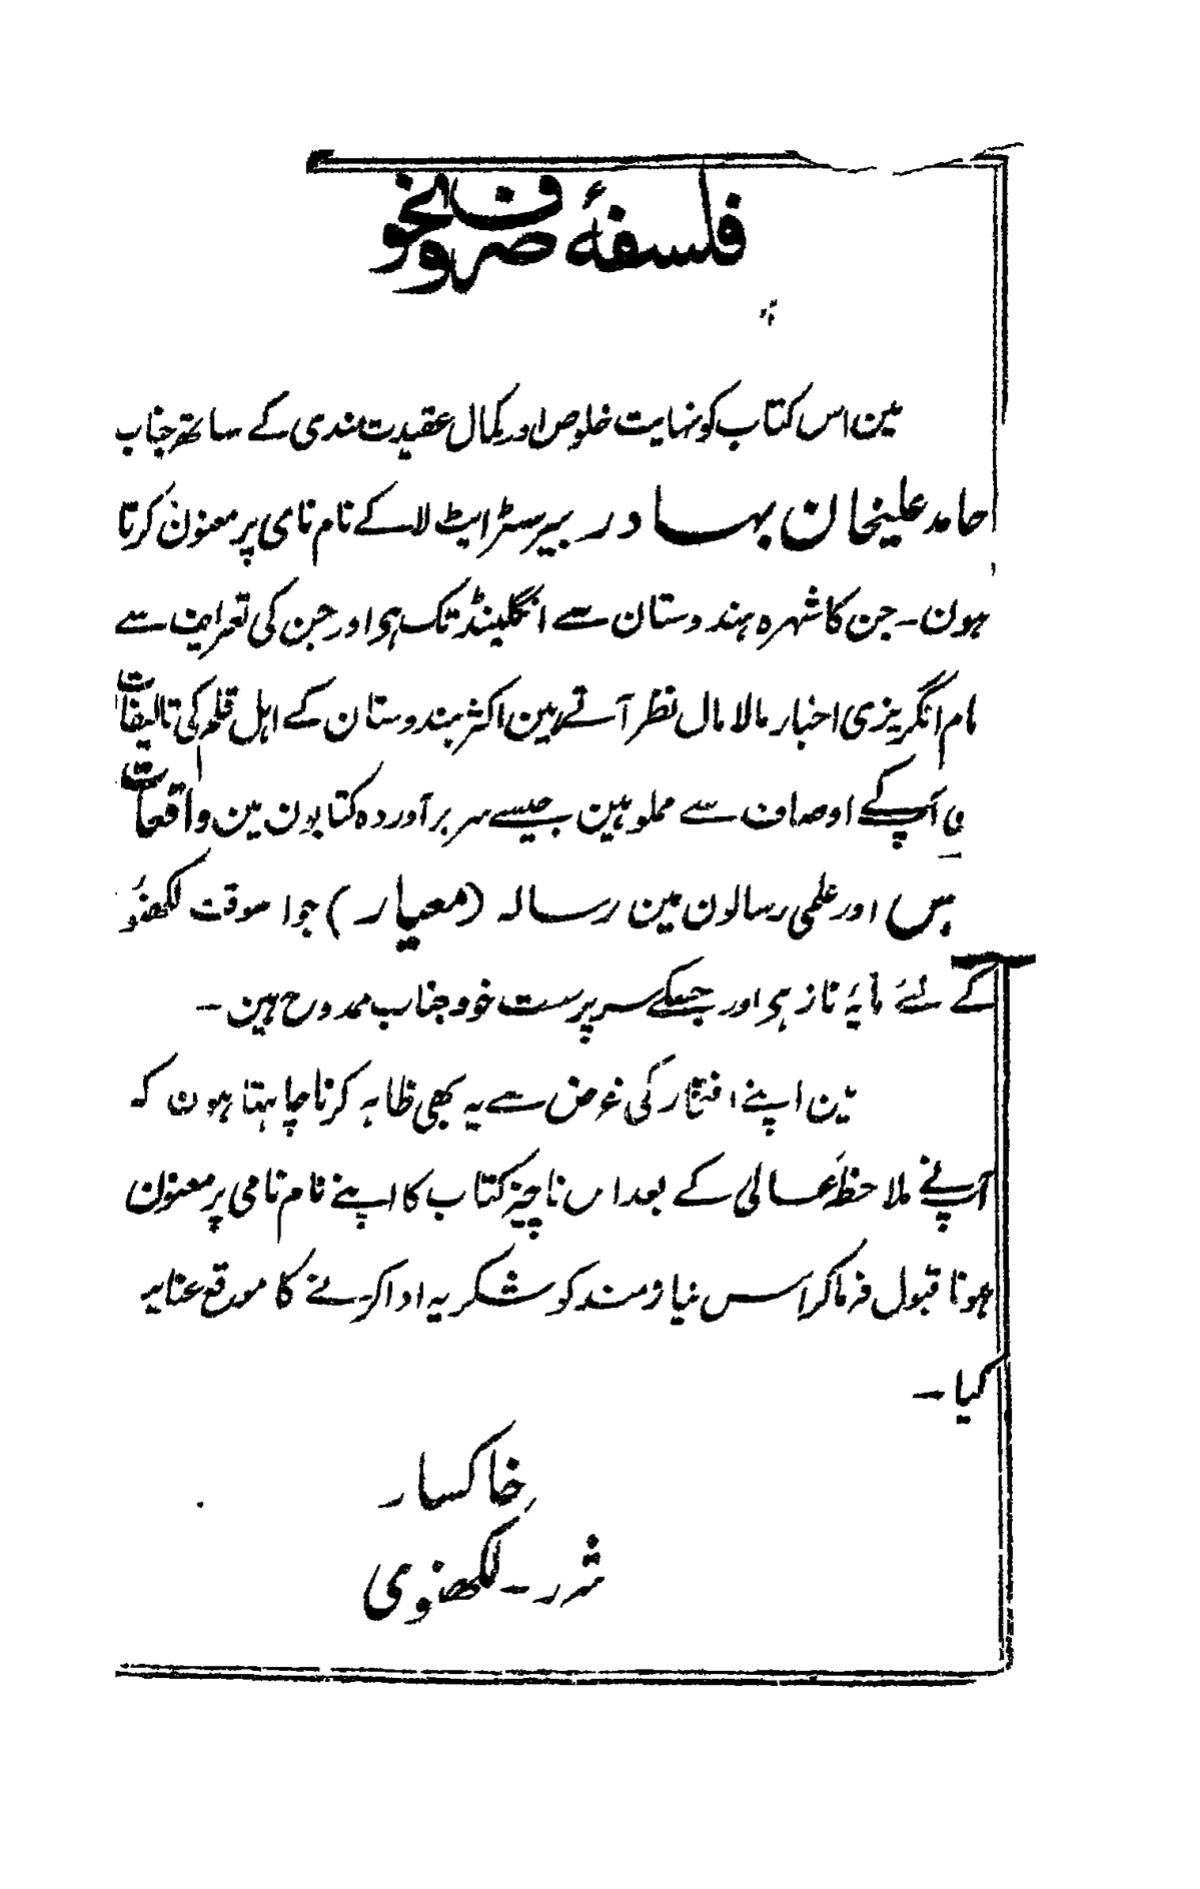 فلسفۂ صرف و نحو
مین اس کتاب کو نہایت خلوص اور کمال عقیدت مندی کے ساتھ جناب
حامد علیخان بہادر بیرسٹر ایٹ لا کے نام نامی پر معنون کرتا
ہون - جن کا شہرہ ہندوستان سے انگلینڈ تک ہی اور جن کی تعریف سے
ام انگریزی اخبار مالا مال نظر آتے ہین اکثر ہندوستان کے اہل قلم کی تالیفات
ی آپکے اوصاف سے مملو ہین جیسے سربرآوردہ کتابون مین واقعات
اور علمی رسالون مین رسالہ (معیار) جو اسوقت لکھنؤ
کے لئے مایۂ ناز ہی اور جسکے سرپرست خود جناب ممدوح ہین -
مین اپنے افتخار کی غرض سے یہ بھی ظاہر کرنا چاہتا ہون کہ
آپنے ملاحظۂ عالی کے بعد اس ناچیز کتاب کا اپنے نام نامی پر معنون
ہونا قبول فرما کر اس نیازمند کو شکریہ ادا کرنے کا موقع عنایہ
کیا -
خاکسار
شرر - لکھنوی